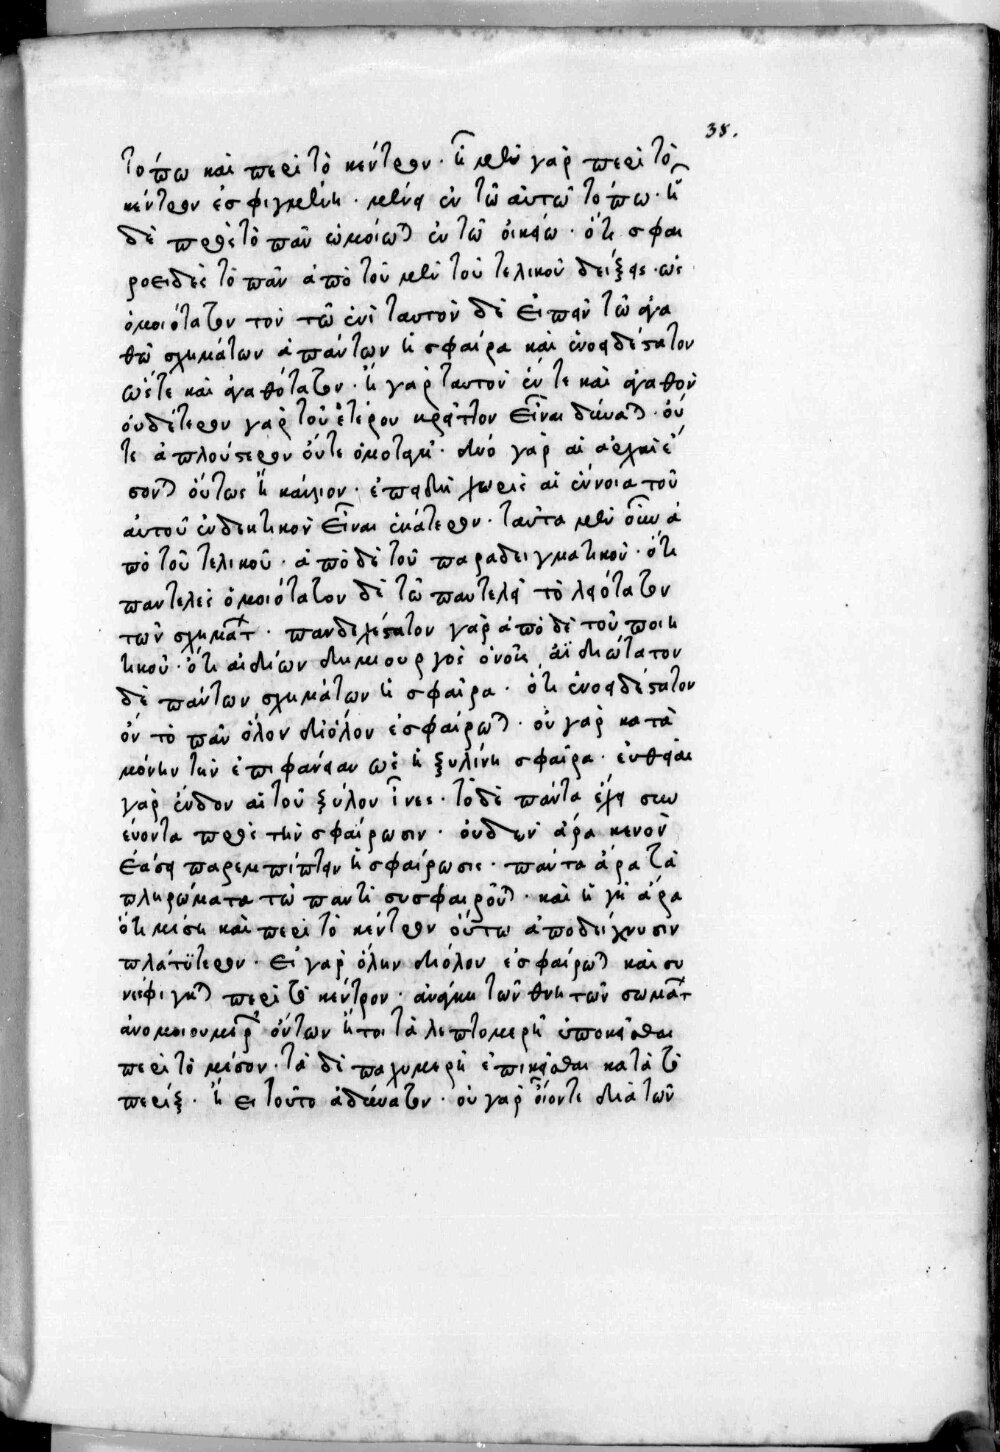 38.
τόπω καὶ περὶ τὸ κέντρον· ἡ μὲν γὰρ περὶ τὸ
κέντρον ἐσφιγμένη· μένει ἐν τῶ αὐτῶ τόπω· ἡ
δὲ πρὸς τὸ πᾶν ἐν τῶ οἰκείω· ὅτι σφαι
ροειδὲς τὸ πᾶν ἀπὸ τοῦ μὲν τοῦ τελικοῦ δείξει· ὡς
ὁμοιότατον τῶ ἑνὶ ταυτὸν δὲ εἰπεῖν τῶ ἀγα
θῶ σχημάτων ἁπάντων ἡ σφαίρα καὶ ἑνοειδέστατον
ὥστε καὶ ἀγαθότατον· ἢ γὰρ ταυτὸν ἕν τε καὶ ἀγαθὸν
οὐδέτερον γὰρ τοῦ ἑτέρου κρεῖττον εἶναι δύναται· οὔ
τε ἁπλούστερον οὔτε· δύο γὰρ αἱ ἀρχαὶ ἔ
σονται οὕτως ἢ· ἐπειδὴ χωρὶς αἱ ἔννοιαι τοῦ
αὐτοῦ ἐνδεικτικὸν εἶναι ἑκάτερον· ταῦτα μὲν οὖν ἀ
πὸ τοῦ τελικοῦ· ἀπὸ δὲ τοῦ παραδειγματικοῦ· ὅτι
παντελὲς ὁμοιότατον δὲ τῶ παντελεῖ τὸ λειότατον
τῶν σχημάτ· πανδεχέστατον γὰρ ἀπὸ δὲ τοῦ ποιη
τικοῦ· ὅτι ἀιδίων δημιουργὸς ὁ νοῦς ἀϊδιώτατον
δὲ πάντων σχημάτων ἡ σφαῖρα· ὅτι ἑνοειδέστατον
ὂν τὸ πᾶν ὅλον διόλου ἐσφαίρωται· οὐ γὰρ κατὰ
μόνην τὴν ἐπιφάνειαν ὡς ἡ ξυλίνη σφαῖρα· εὐθεῖαι
γὰρ ἔνδον αἱ τοῦ ξύλου ἶνες· τὸ δὲ πάντα ἔχει συν
εύοντα πρὸς τὴν σφαίρωσιν· οὐδὲν ἄρα κενὸν
ἐάσει παρεμπίπτειν ἡ σφαίρωσις· πάντα ἄρα τὰ
πληρώματα τῶ παντὶ συσφαιροῦται· καὶ ἡ γῆ ἄρα
ὅτι μέση καὶ περὶ τὸ κέντρον οὕτω ἀποδείκνυσιν
πλατύτερον· εἰ γὰρ ὅλην διόλου ἐσφαίρωται καὶ συ
νέσφιγκται περὶ τὸ κέντρον· ἀνάγκη τῶν θνητῶν σωμάτ
ἀνομοιομερ ὄντων ἤτοι τὰ λεπτομερῆ ὑποκεῖσθαι
περὶ τὸ μέσον· τὰ δὲ παχυμερῆ ἐπικεῖσθαι κατὰ τὸ
πέριξ· ἢ εἰ τοῦτο ἀδύνατον· οὐ γὰρ οἷόντε διὰ τῶν